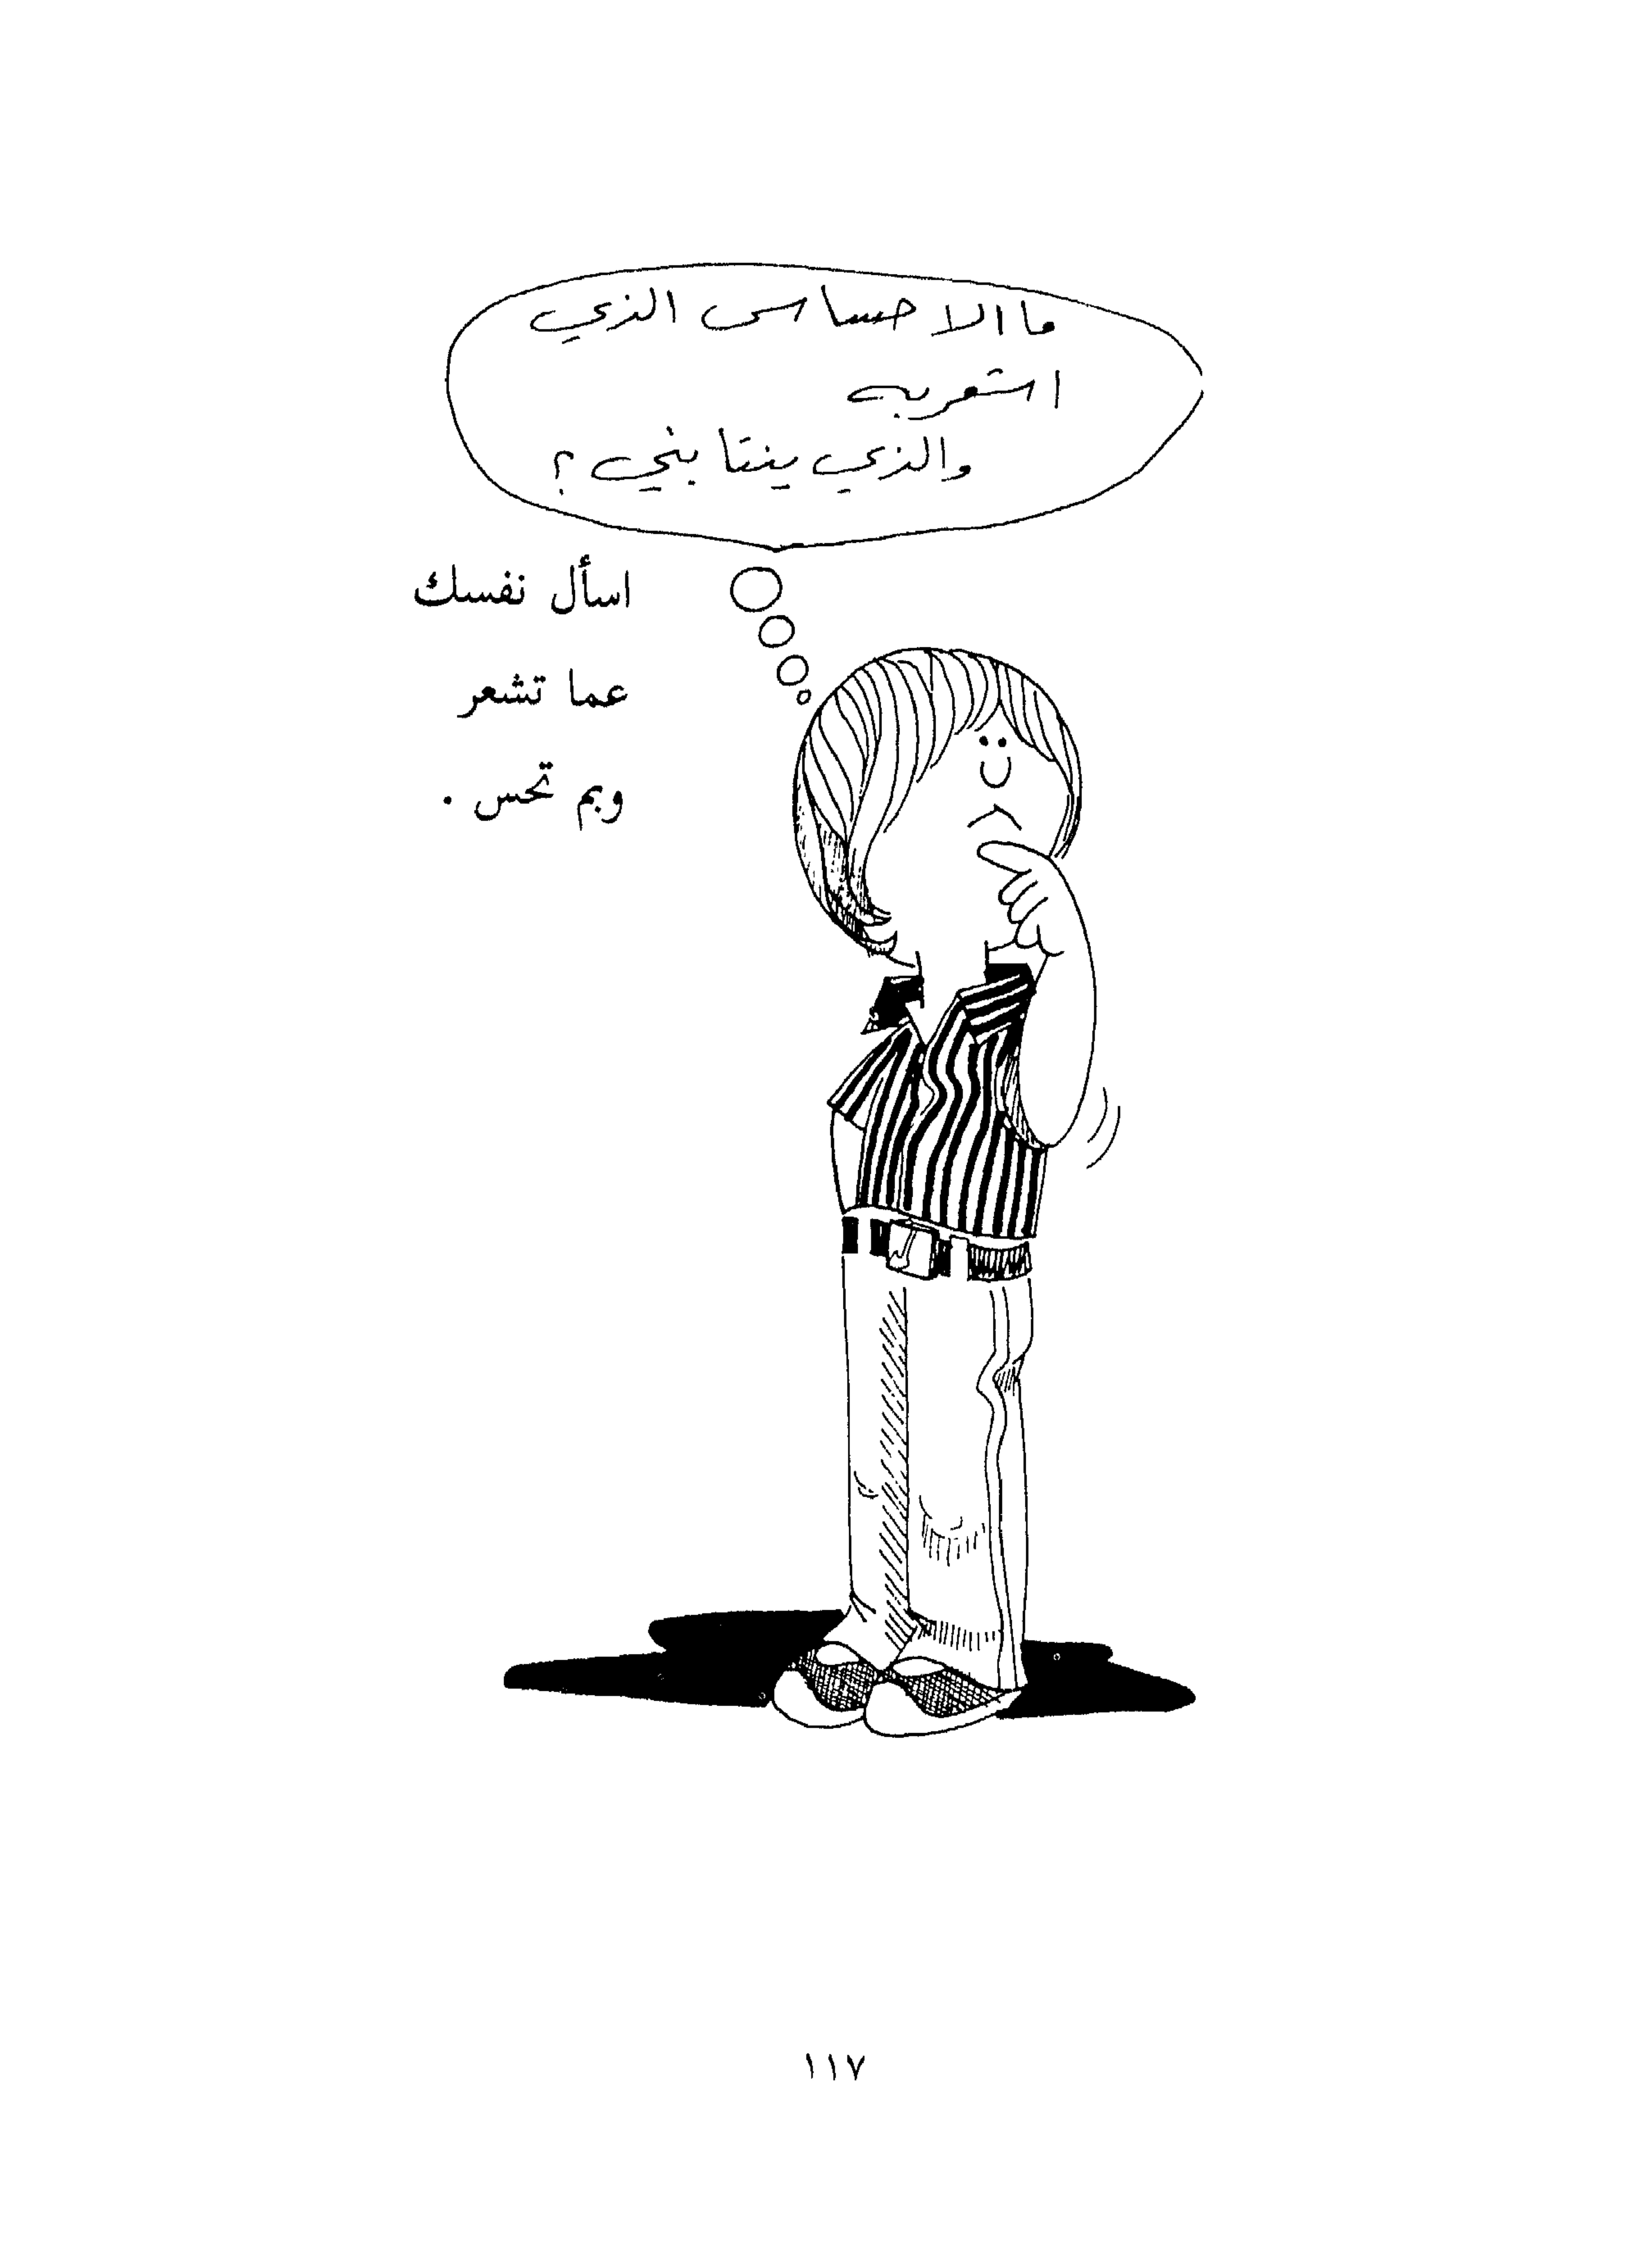 ما الاحساس الذي
اشعر به
والذي ينتابني ؟
اسأل نفسك
عما تشعر
وبم تحس .
١١٧